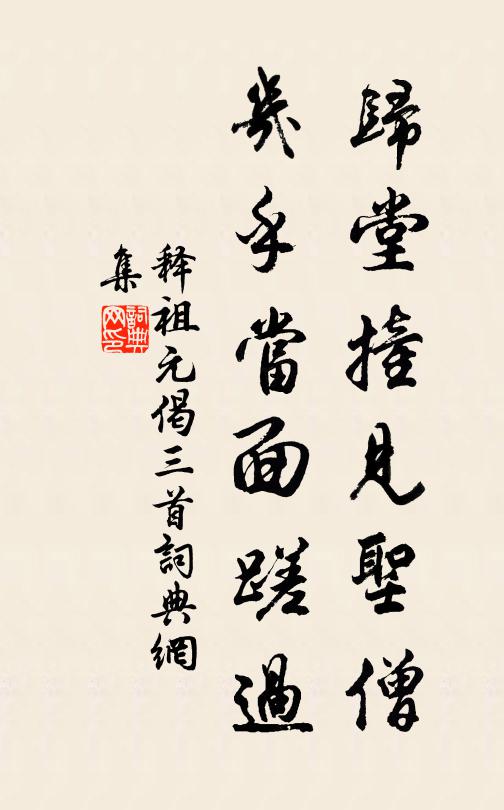 歸堂撞見聖僧
幾乎當面蹉過
釋祖元偈三首詞典網
集
詞典
网印